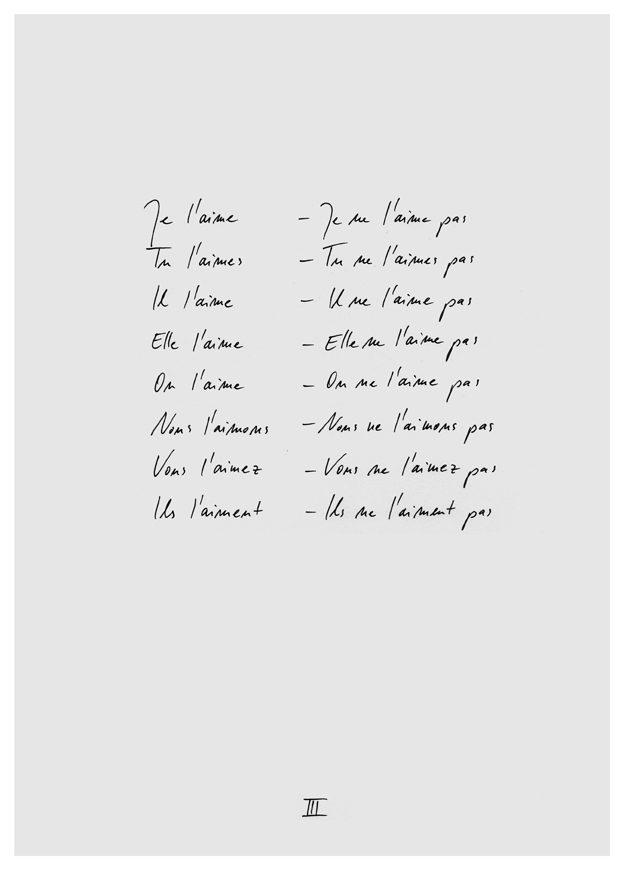 Je l'aime – Je ne l'aime pas
Tu l'aimes – Tu ne l'aimes pas
Il l'aime – Il ne l'aime pas
Elle l'aime – Elle ne l'aime pas
On l'aime – On ne l'aime pas
Nous l'aimons – Nous ne l'aimons pas
Vous l'aimez – Vous ne l'aimez pas
Ils l'aiment – Ils ne l'aiment pas
III